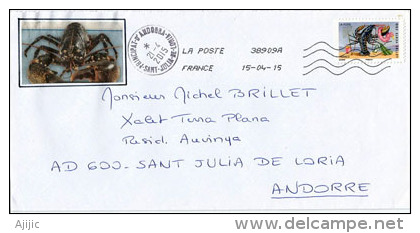 PRINCIPAT D'ANDORRA
21-4
2015
SANT-JULIA-DE-LORIA
LA POSTE 38909A
FRANCE 15-04-15
Monsieur Michel BRILLET
Xalet Tuna Plana
Resid. Auvinya
AD 600-SANT JULIA DE LORIA
ANDORRE
Ajijic
www.delcampe.net